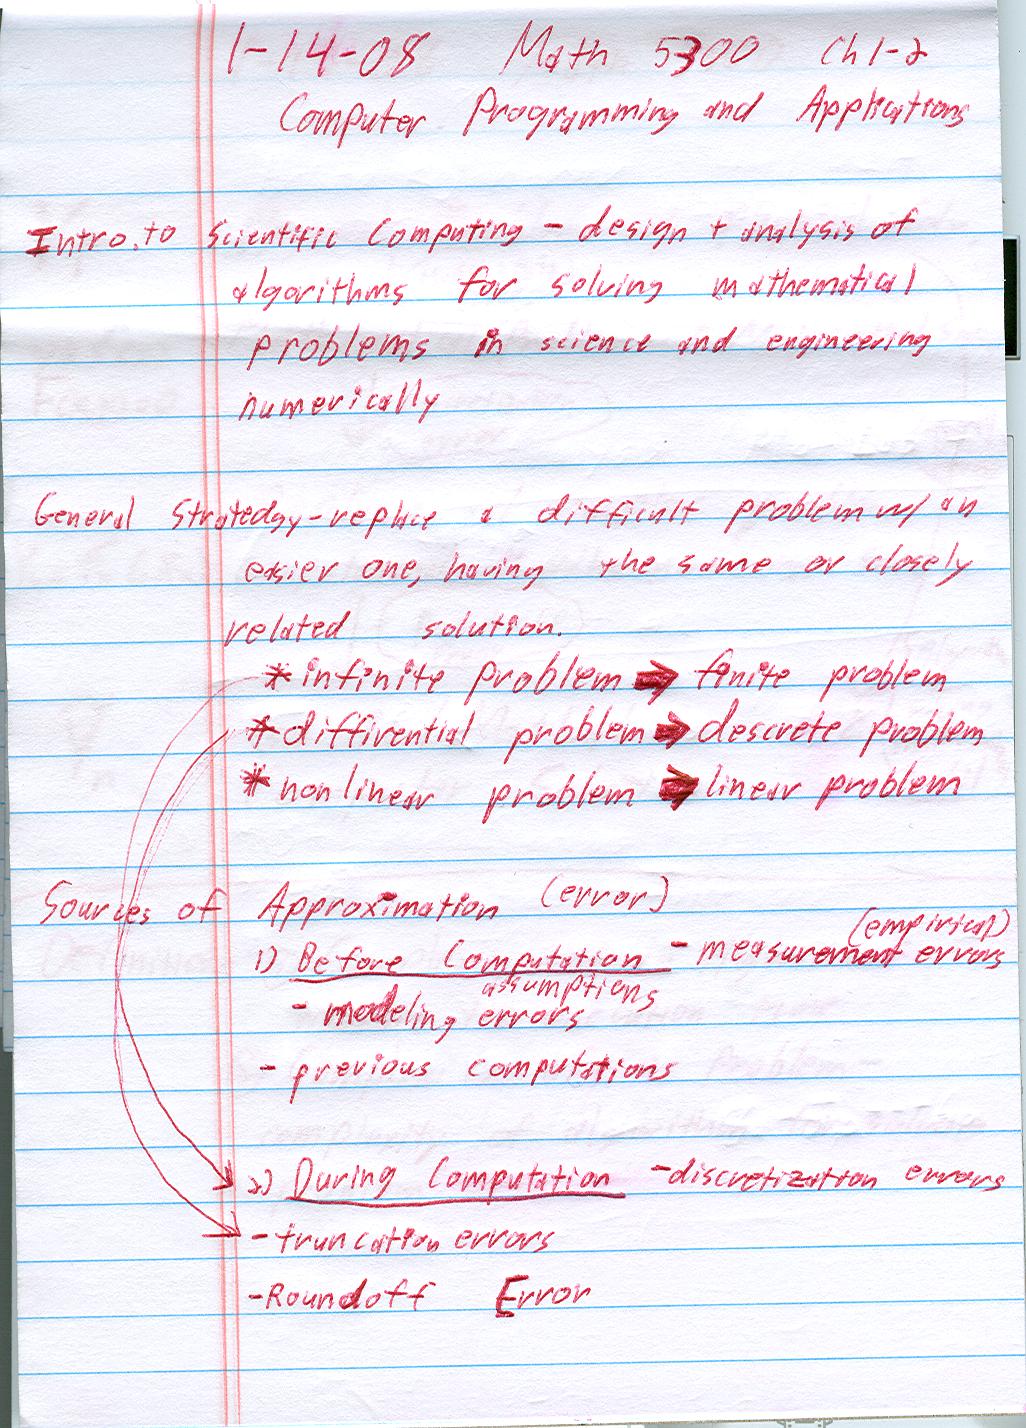 1-14-08 Math 5300 Ch 1-2
Computer Programming and Applications
Intro. to Scientific Computing - design + analysis of
algorithms for solving mathematical
problems in science and engineering
numerically
General Stratedgy - replace a difficult problem w/ an
easier one, having the same or closely
related solution.
* infinite problem ➡ finite problem
* diffirential problem ➡ descrete problem
* nonlinear problem ➡ linear problem
Sources of Approximation (error)
(empirical)
1) Before Computation - measurement errors
assumptions
- modeling errors
- previous computations
2) During Computation - discretization errors
- truncation errors
- Roundoff Error